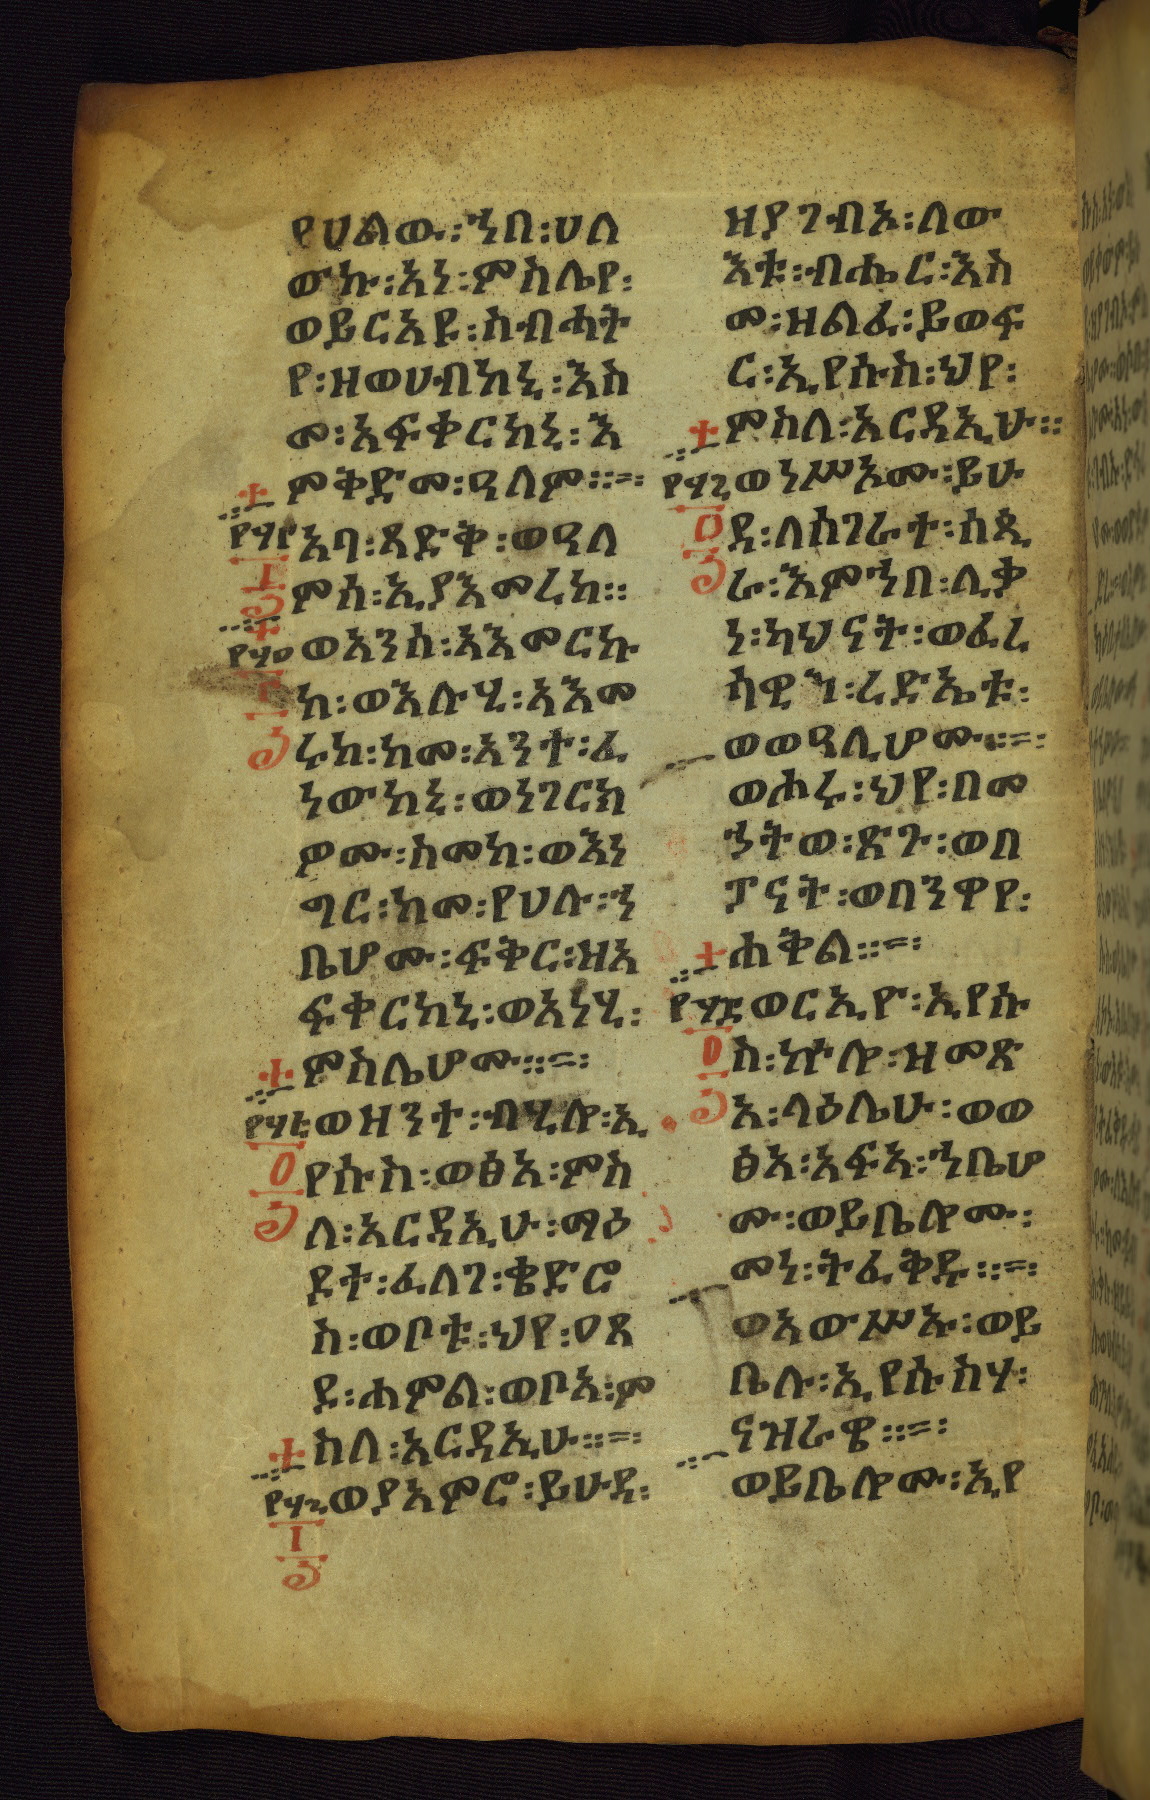 የሀልው፡ኀበ፡ሀለ
ውኩ፡አነ፡ምስሌየ፡
ወይርአዩ፡ስብሓት
የ፡ዘወሀብከኒ፡እስ
መ፡አፍቀርከኒ፡እ
ምቅድመ፡ዓለም፡፡፡
አባ፡ጻድቅ፡ወዓለ
ምሰ፡ኢያእመረከ፡፡
ወአንሰ፡አእመርኩ
ከ፡ወእሉሂ፡አእመ
ሩከ፡ከመ፡አንተ፡ፈ
ነውከኒ፡ወነገርክ
ዎሙ፡ስመከ፡ወእነ
ግር፡ከመ፡የሀሉ፡ኀ
ቤሆሙ፡ፍቅር፡ዝአ
ፍቀርከኒ፡ወአነሂ፡
ምስሌሆሙ፡፡፡
ወዘንተ፡ብሂሎ፡ኢ
የሱስ፡ወፅአ፡ምስ
ለ፡አርዳኢሁ፡ማዕ
ደተ፡ፈለገ፡ቄድሮ
ስ፡ወቦቱ፡ህየ፡ዐጸ
ደ፡ሐምል፡ወቦአ፡ም
ስለ፡አርዳኢሁ፡፡፡
ወያአምሮ፡ይሁዳ፡
ዘያገብኦ፡ለው
እቱ፡ብሔር፡እስ
መ፡ዘልፈ፡ይወፍ
ር፡ኢየሱስ፡ህየ፡
ምስለ፡አርዳኢሁ፡፡
ወነሥአሙ፡ይሁ
ዳ፡ለሰገራተ፡ሰጲ
ራ፡እምኀበ፡ሊቃ
ነ፡ካህናት፡ወፈሪ
ሳዊ፡ረድኤቱ፡
ወወዓሊሆሙ፡፡፡
ወሖሩ፡ህየ፡በመ
ኃትው፡ጽጉ፡ወበ
ፓናት፡ወበንዋየ፡
ሐቅል፡፡፡
ወርእዮ፡ኢየሱ
ስ፡ኵሎ፡ዘመጽ
አ፡ላዕሌሁ፡ወወ
ፅአ፡አፍአ፡ኀቤሆ
ሙ፡ወይቤሎሙ፡
መነ፡ትፈቅዱ፡፡፡
ወአውሥኡ፡ወይ
ቤሉ፡ኢየሱስሃ፡
ናዝራዌ፡፡፡
ወይቤሎሙ፡ኢየ